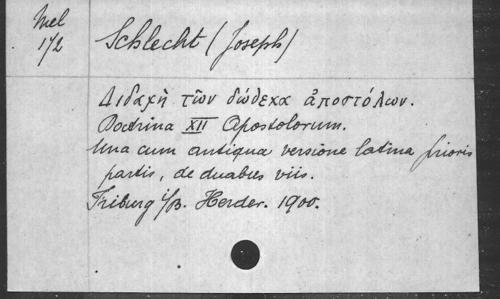 Mel
172
Schlecht (Joseph)
Διδαχὴ τῶν δώδεκα ἀποστόλων.
Doctrina XII Apostolorum.
Una cum antiqua versione latina prioris
partis, de duabus viis.
Friburg i/B. Herder. 1900.